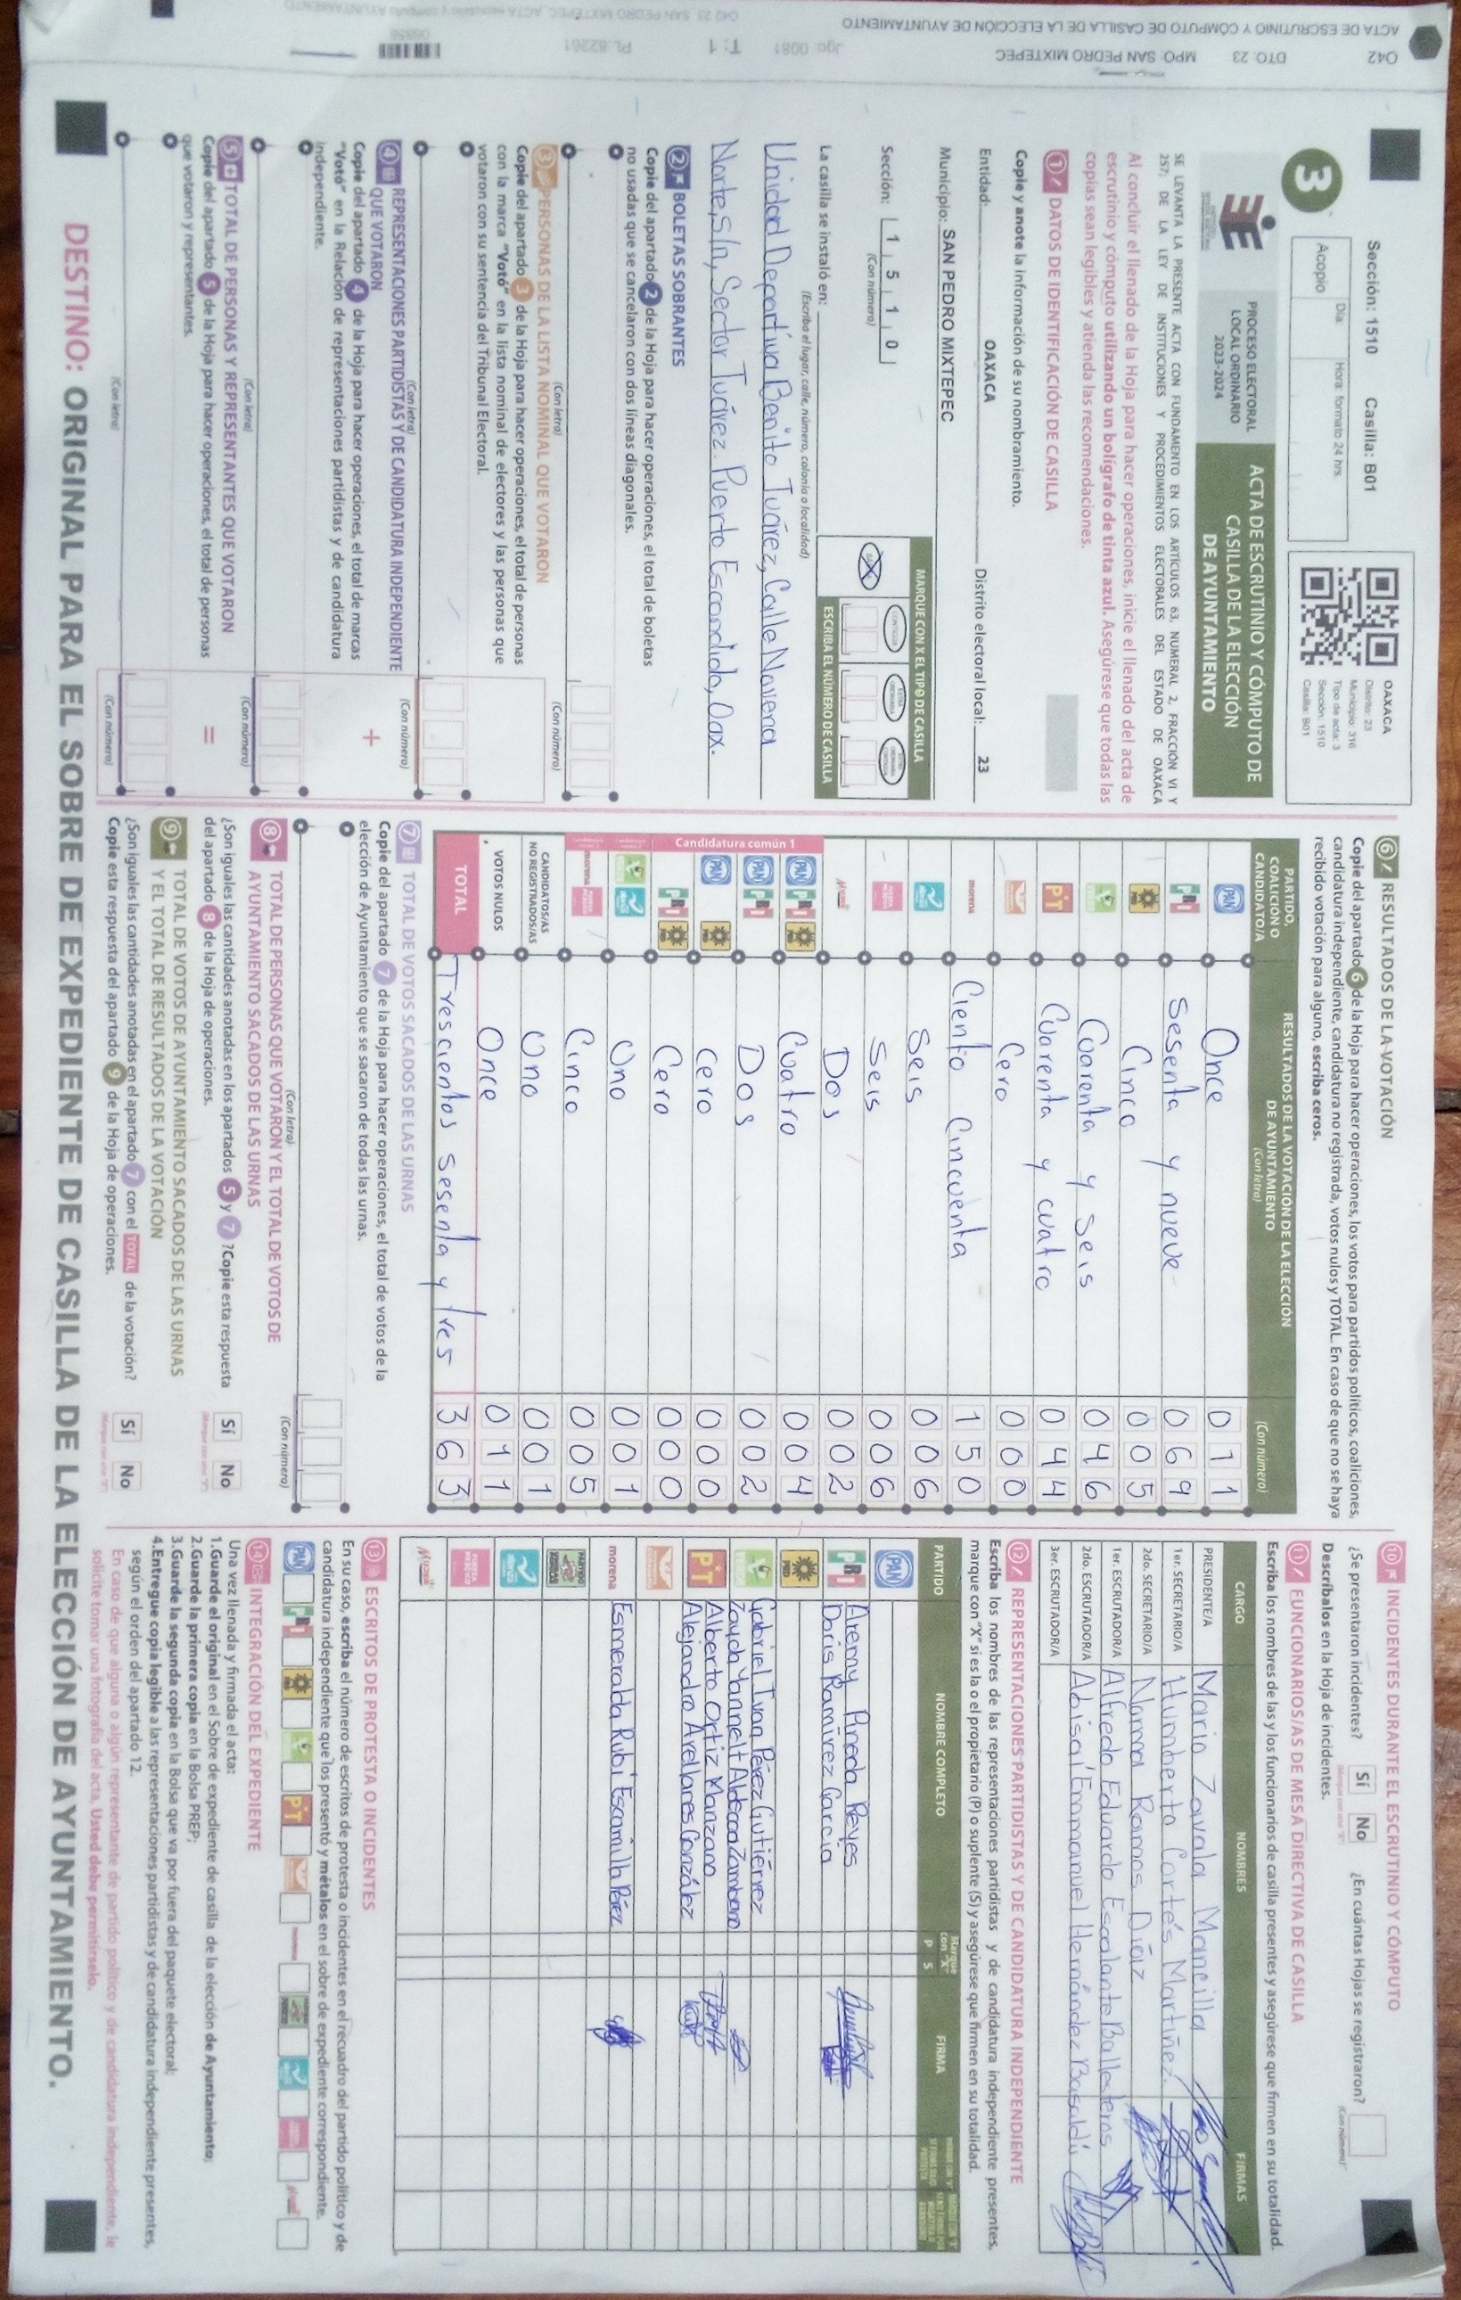 Sección: 1510 Casilla: B01
Día: Hora: formato 24 hrs.
Acopio
OAXACA
Distrito: 23
Municipio: 316
Tipo de acta: 3
Sección: 1510
Casilla: B01
3
PROCESO ELECTORAL
LOCAL ORDINARIO
2023-2024
ACTA DE ESCRUTINIO Y CÓMPUTO DE
CASILLA DE LA ELECCIÓN
DE AYUNTAMIENTO
SE LEVANTA LA PRESENTE ACTA CON FUNDAMENTO EN LOS ARTÍCULOS 63, NUMERAL 2, FRACCIÓN VI Y
257; DE LA LEY DE INSTITUCIONES Y PROCEDIMIENTOS ELECTORALES DEL ESTADO DE OAXACA
Al concluir el llenado de la Hoja para hacer operaciones, inicie el llenado del acta de
escrutinio y cómputo utilizando un bolígrafo de tinta azul. Asegúrese que todas las
copias sean legibles y atienda las recomendaciones.
1 DATOS DE IDENTIFICACIÓN DE CASILLA
Copie y anote la información de su nombramiento.
Entidad: OAXACA Distrito electoral local: 23
Municipio: SAN PEDRO MIXTEPEC
Sección: 1 5 1 0
(Con número)
MARQUE CON X EL TIPO DE CASILLA
ESCRIBA EL NÚMERO DE CASILLA
La casilla se instaló en:
(Escriba el lugar, calle, número, colonia o localidad)
Unidad Deportiva Benito Juárez, Calle Naviera
Norte, s/n, Sector Juárez. Puerto Escondido, Oax.
2 BOLETAS SOBRANTES
Copie del apartado 2 de la Hoja para hacer operaciones, el total de boletas
no usadas que se cancelaron con dos líneas diagonales.
(Con letra) (Con número)
3 PERSONAS DE LA LISTA NOMINAL QUE VOTARON
Copie del apartado 3 de la Hoja para hacer operaciones, el total de personas
con la marca "Votó" en la lista nominal de electores y las personas que
votaron con su sentencia del Tribunal Electoral.
(Con letra) (Con número)
+
4 REPRESENTACIONES PARTIDISTAS Y DE CANDIDATURA INDEPENDIENTE
QUE VOTARON
Copie del apartado 4 de la Hoja para hacer operaciones, el total de marcas
"Votó" en la Relación de representaciones partidistas y de candidatura
independiente.
(Con letra) (Con número)
5 TOTAL DE PERSONAS Y REPRESENTANTES QUE VOTARON
Copie del apartado 5 de la Hoja para hacer operaciones, el total de personas
que votaron y representantes.
=
(Con letra) (Con número)
6 RESULTADOS DE LA VOTACIÓN
Copie del apartado 6 de la Hoja para hacer operaciones, los votos para partidos políticos, coaliciones,
candidatura independiente, candidatura no registrada, votos nulos y TOTAL. En caso de que no se haya
recibido votación para alguno, escriba ceros.
PARTIDO, COALICIÓN O CANDIDATO/A
RESULTADOS DE LA VOTACIÓN DE LA ELECCIÓN DE AYUNTAMIENTO
(Con letra) (Con número)
PAN Once 011
PRI Sesenta y nueve 069
PRD Cinco 005
Cuarenta y seis 046
PT Cuarenta y cuatro 044
Cero 000
morena Ciento Cincuenta 150
Seis 006
Seis 006
Dos 002
Candidatura común 1
PAN PRI PRD Cuatro 004
PAN PRI Dos 002
PAN PRD Cero 000
PRI PRD Cero 000
Uno 001
morena Cinco 005
CANDIDATOS/AS NO REGISTRADOS/AS Uno 001
VOTOS NULOS Once 011
TOTAL Trescientos sesenta y tres 363
7 TOTAL DE VOTOS SACADOS DE LAS URNAS
Copie del apartado 7 de la Hoja para hacer operaciones, el total de votos de la
elección de Ayuntamiento que se sacaron de todas las urnas.
(Con letra) (Con número)
8 TOTAL DE PERSONAS QUE VOTARON Y EL TOTAL DE VOTOS DE
AYUNTAMIENTO SACADOS DE LAS URNAS
¿Son iguales las cantidades anotadas en los apartados 5 y 7 ? Copie esta respuesta
del apartado 8 de la Hoja de operaciones.
Sí No
9 TOTAL DE VOTOS DE AYUNTAMIENTO SACADOS DE LAS URNAS
Y EL TOTAL DE RESULTADOS DE LA VOTACIÓN
¿Son iguales las cantidades anotadas en el apartado 7 con el TOTAL de la votación?
Copie esta respuesta del apartado 9 de la Hoja de operaciones.
Sí No
10 INCIDENTES DURANTE EL ESCRUTINIO Y CÓMPUTO
¿Se presentaron incidentes? Sí No ¿En cuántas Hojas se registraron?
Descríbalos en la Hoja de incidentes.
(Con número)
11 FUNCIONARIOS/AS DE MESA DIRECTIVA DE CASILLA
Escriba los nombres de las y los funcionarios de casilla presentes y asegúrese que firmen en su totalidad.
CARGO NOMBRES FIRMAS
PRESIDENTE/A Mario Zavala Mancilla
1er. SECRETARIO/A Humberto Cortés Martínez
2do. SECRETARIO/A Norma Ramos Díaz
1er. ESCRUTADOR/A Alfredo Eduardo Escalante Ballesteros
2do. ESCRUTADOR/A Abisaí Emmanuel Hernández Basaldú
3er. ESCRUTADOR/A
12 REPRESENTACIONES PARTIDISTAS Y DE CANDIDATURA INDEPENDIENTE
Escriba los nombres de las representaciones partidistas y de candidatura independiente presentes,
marque con "X" si es la o el propietario (P) o suplente (S) y asegúrese que firmen en su totalidad.
PARTIDO NOMBRE COMPLETO Marque con "X" P S FIRMA
PAN
PRI Areray Pineda Reyes
Doris Ramírez García
PRD
Gabriel Ivan Pérez Gutiérrez
Zayda Yannelt Aldecoa Zambrano
PT Alberto Ortiz Manzano
Alejandro Arellanes González
morena Esmeralda Rubí Escamilla Pérez
13 ESCRITOS DE PROTESTA O INCIDENTES
En su caso, escriba el número de escritos de protesta o incidentes en el recuadro del partido político y de
candidatura independiente que los presentó y métalos en el sobre de expediente correspondiente.
PAN PRI PRD PT morena
14 INTEGRACIÓN DEL EXPEDIENTE
Una vez llenada y firmada el acta:
1.Guarde el original en el Sobre de expediente de casilla de la elección de Ayuntamiento;
2.Guarde la primera copia en la Bolsa PREP;
3.Guarde la segunda copia en la Bolsa que va por fuera del paquete electoral;
4.Entregue copia legible a las representaciones partidistas y de candidatura independiente presentes,
según el orden del apartado 12.
En caso de que alguna o algún representante de partido político y de candidatura independiente, le
solicite tomar una fotografía del acta, Usted debe permitírselo.
DESTINO: ORIGINAL PARA EL SOBRE DE EXPEDIENTE DE CASILLA DE LA ELECCIÓN DE AYUNTAMIENTO.
ACTA DE ESCRUTINIO Y CÓMPUTO DE CASILLA DE LA ELECCIÓN DE AYUNTAMIENTO
042 DTO. 23 MPO: SAN PEDRO MIXTEPEC Jgo: 0081 T: 1